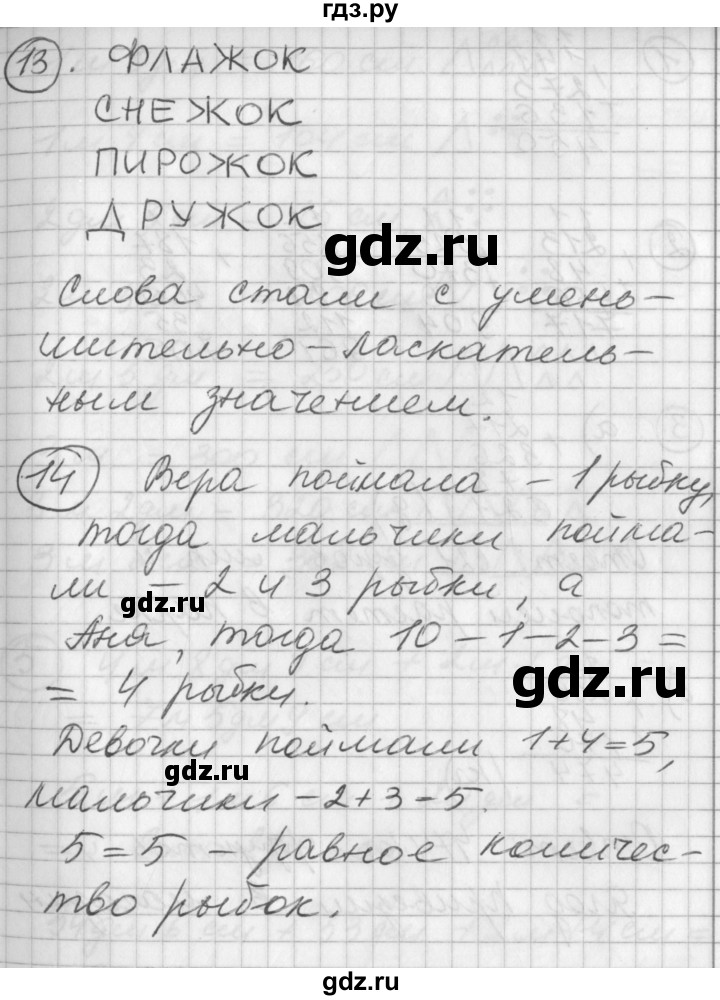 гдз.ру
13. ФЛАЖОК
СНЕЖОК
ПИРОЖОК
ДРУЖОК
gdz.ru
Слова стали с умень-
шительно-ласкатель-
ным значением.
14 Вера поймала - 1 рыбку,
тогда мальчики пойма-
ли - 2 и 3 рыбки, а
gdz.ru
Аня, тогда 10-1-2-3=
= 4 рыбки.
gdz.ru
Девочки поймали 1+4=5,
gdz.ru
мальчики -2+3-5.
5=5 - равное количес-
тво рыбок.
gdz.ru
gdz.ru